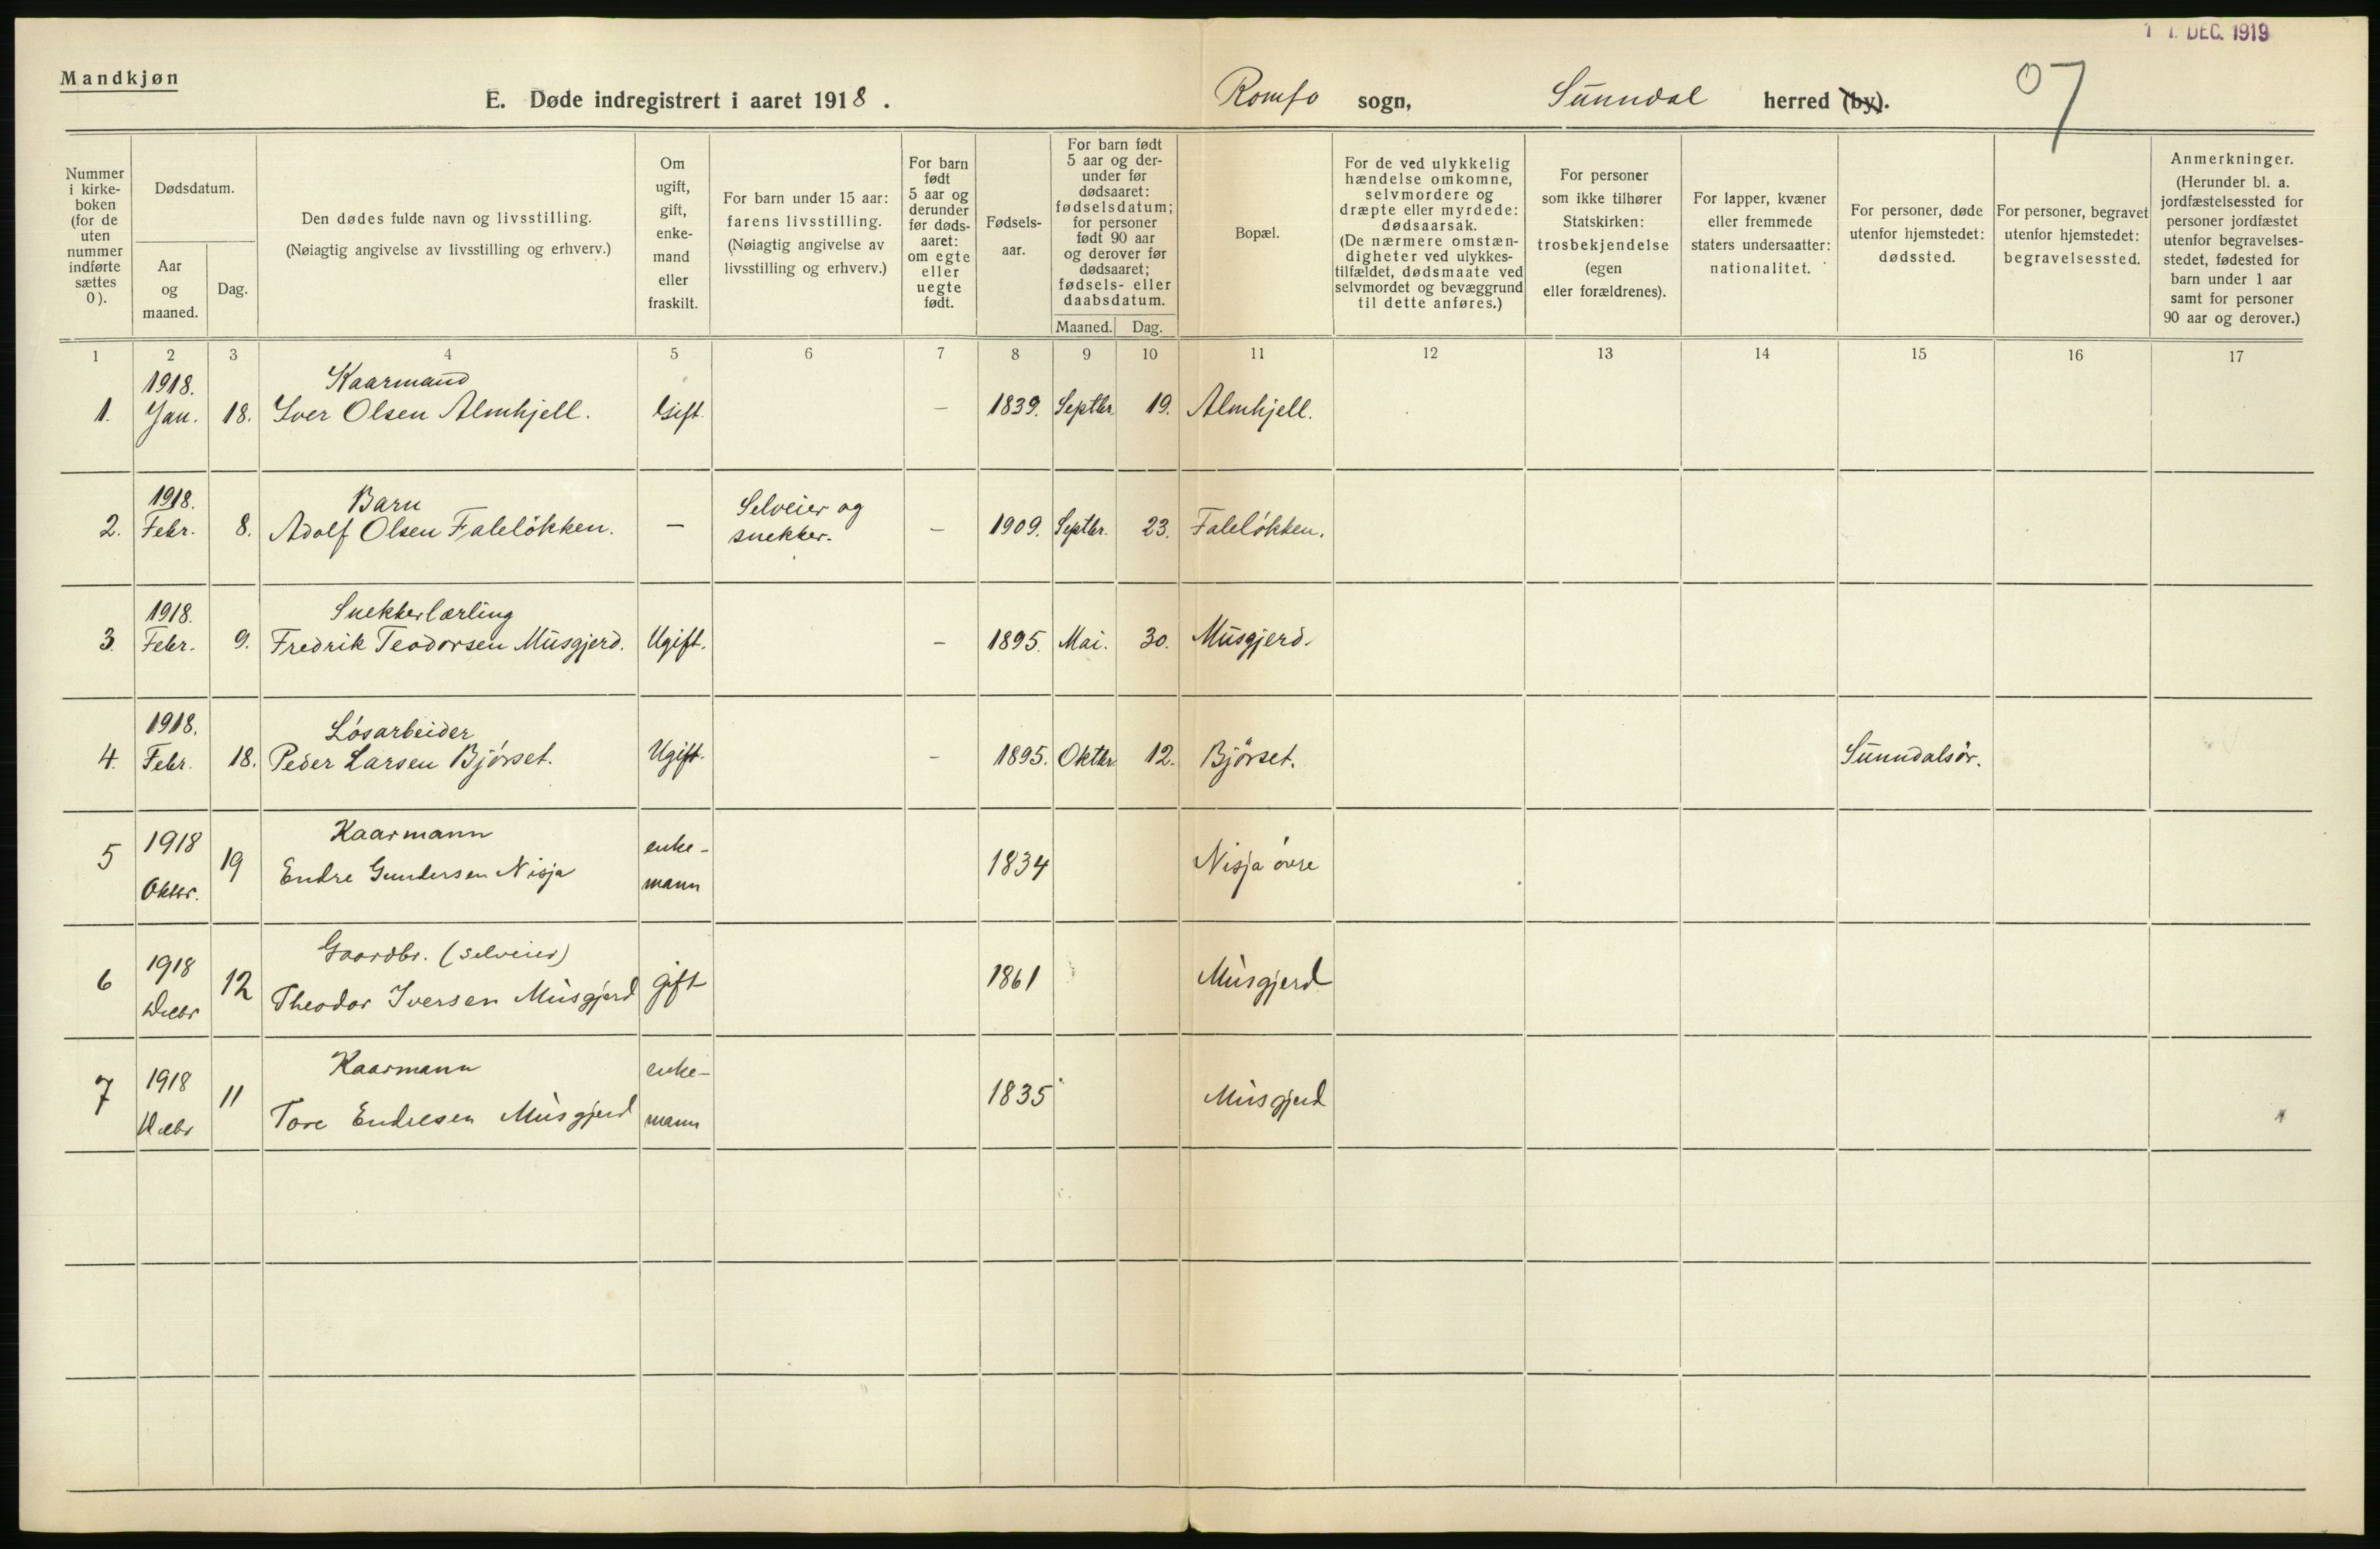 1 1. DEC. 1919
Mandkjøn
E. Døde indregistrert i aaret 1918.
Romfo sogn, Sunndal herred (by).
07
Nummer i kirke-boken (for de uten nummer indførte sættes 0).
Dødsdatum.
Aar og maaned.
Dag.
Den dødes fulde navn og livsstilling.
(Nøiagtig angivelse av livsstilling og erhverv.)
Om ugift, gift, enke-mand eller fraskilt.
For barn under 15 aar: farens livsstilling.
(Nøiagtig angivelse av livsstilling og erhverv.)
For barn født 5 aar og derunder før døds-aaret: om egte eller uegte født.
Fødsels-aar.
For barn født 5 aar og der-under før dødsaaret: fødselsdatum; for personer født 90 aar og derover før dødsaaret; fødsels- eller daabsdatum.
Maaned. Dag.
Bopæl.
For de ved ulykkelig hændelse omkomne, selvmordere og dræpte eller myrdede: dødsaarsak.
(De nærmere omstæn-digheter ved ulykkes-tilfældet, dødsmaate ved selvmordet og bevæggrund til dette anføres.)
For personer som ikke tilhører Statskirken: trosbekjendelse (egen eller forældrenes).
For lapper, kvæner eller fremmede staters undersaatter: nationalitet.
For personer, døde utenfor hjemstedet: dødssted.
For personer, begravet utenfor hjemstedet: begravelsessted.
Anmerkninger.
(Herunder bl. a. jordfæstelsessted for personer jordfæstet utenfor begravelses-stedet, fødested for barn under 1 aar samt for personer 90 aar og derover.)
1 2 3 4 5 6 7 8 9 10 11 12 13 14 15 16 17
1918. Kaarmand
1. Jan. 18. Iver Olsen Almhjell. Gift. – 1839. Septbr. 19. Almhjell.
1918. Barn Selveier og
2. Febr. 8. Adolf Olsen Faleløkken. – snekker. – 1909. Septbr. 23. Faleløkken.
1918. Snekkerlærling
3. Febr. 9. Fredrik Teodorsen Musgjerd. Ugift. – 1895. Mai. 30. Musgjerd.
1918. Løsarbeider
4. Febr. 18. Peder Larsen Bjørset. Ugift. – 1895. Oktbr. 12. Bjørset. Sunndalsør.
5 1918 19 Kaarmann enke- 1834 Nisja øvre
Oktbr. Endre Gundersen Nisja mann
6 1918 12 Gaardbr. (selveier) gift 1861 Musgjerd
Decbr Theodor Iversen Musgjerd
7 1918 11 Kaarmann enke- 1835 Musgjerd
Decbr Tore Endresen Musgjerd mann